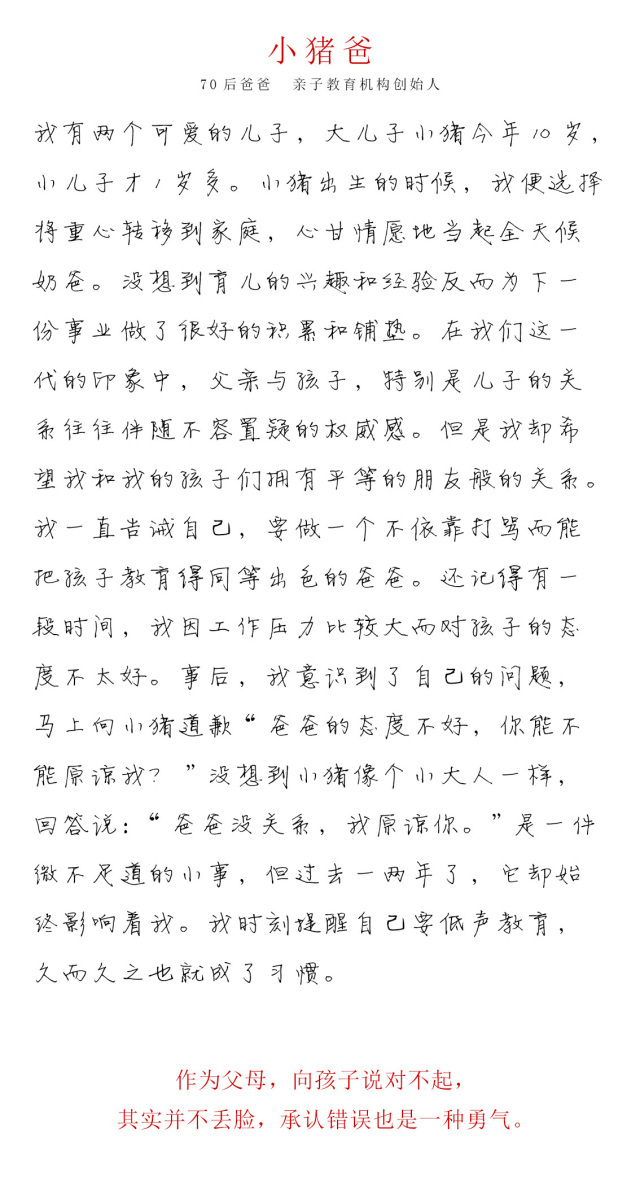 小猪爸
70后爸爸 亲子教育机构创始人
我有两个可爱的儿子，大儿子小猪今年10岁，
小儿子才1岁多。小猪出生的时候，我便选择
将重心转移到家庭，心甘情愿地当起全天候
奶爸。没想到育儿的兴趣和经验反而为下一
份事业做了很好的积累和铺垫。在我们这一
代的印象中，父亲与孩子，特别是儿子的关
系往往伴随不容置疑的权威感。但是我却希
望我和我的孩子们拥有平等的朋友般的关系。
我一直告诫自己，要做一个不依靠打骂而能
把孩子教育得同等出色的爸爸。还记得有一
段时间，我因工作压力比较大而对孩子的态
度不太好。事后，我意识到了自己的问题，
马上向小猪道歉“爸爸的态度不好，你能不
能原谅我？”没想到小猪像个小大人一样，
回答说：“爸爸没关系，我原谅你。”是一件
微不足道的小事，但过去一两年了，它却始
终影响着我。我时刻提醒自己要低声教育，
久而久之也就成了习惯。
作为父母，向孩子说对不起，
其实并不丢脸，承认错误也是一种勇气。